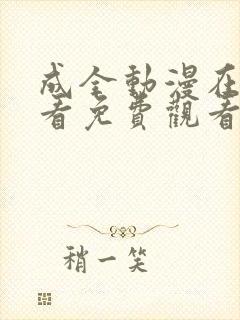 成全動漫在
看免費觀看
稍一笑